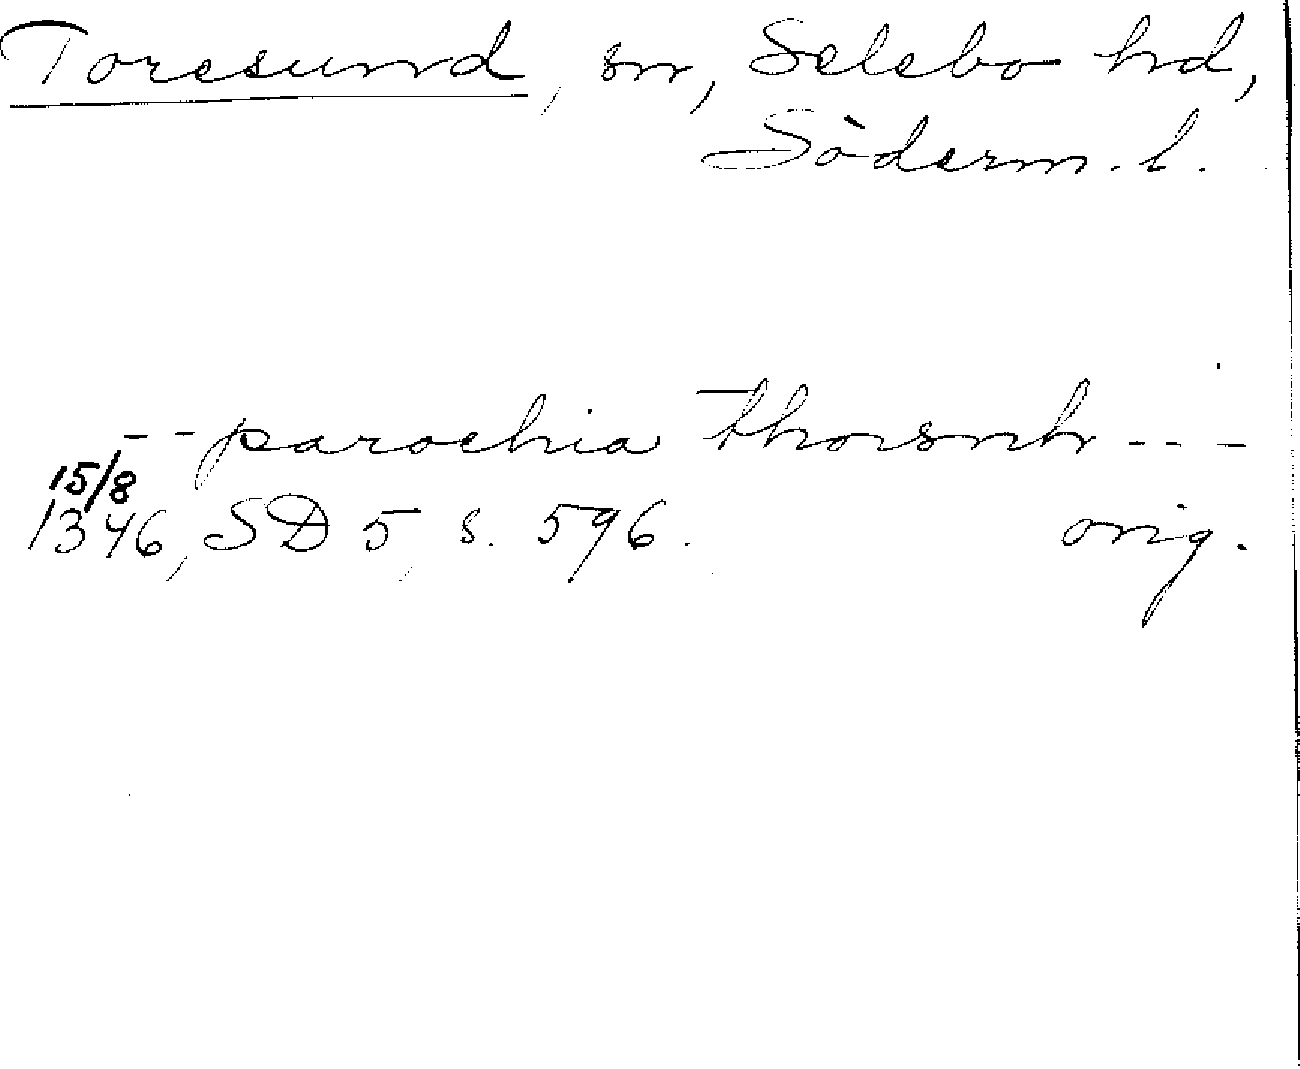 Toresund, sn, Selebo hd,
Söderm. l.
- - parochia Thorsnh - - -
15/8
1346, SD 5, s. 596. orig.